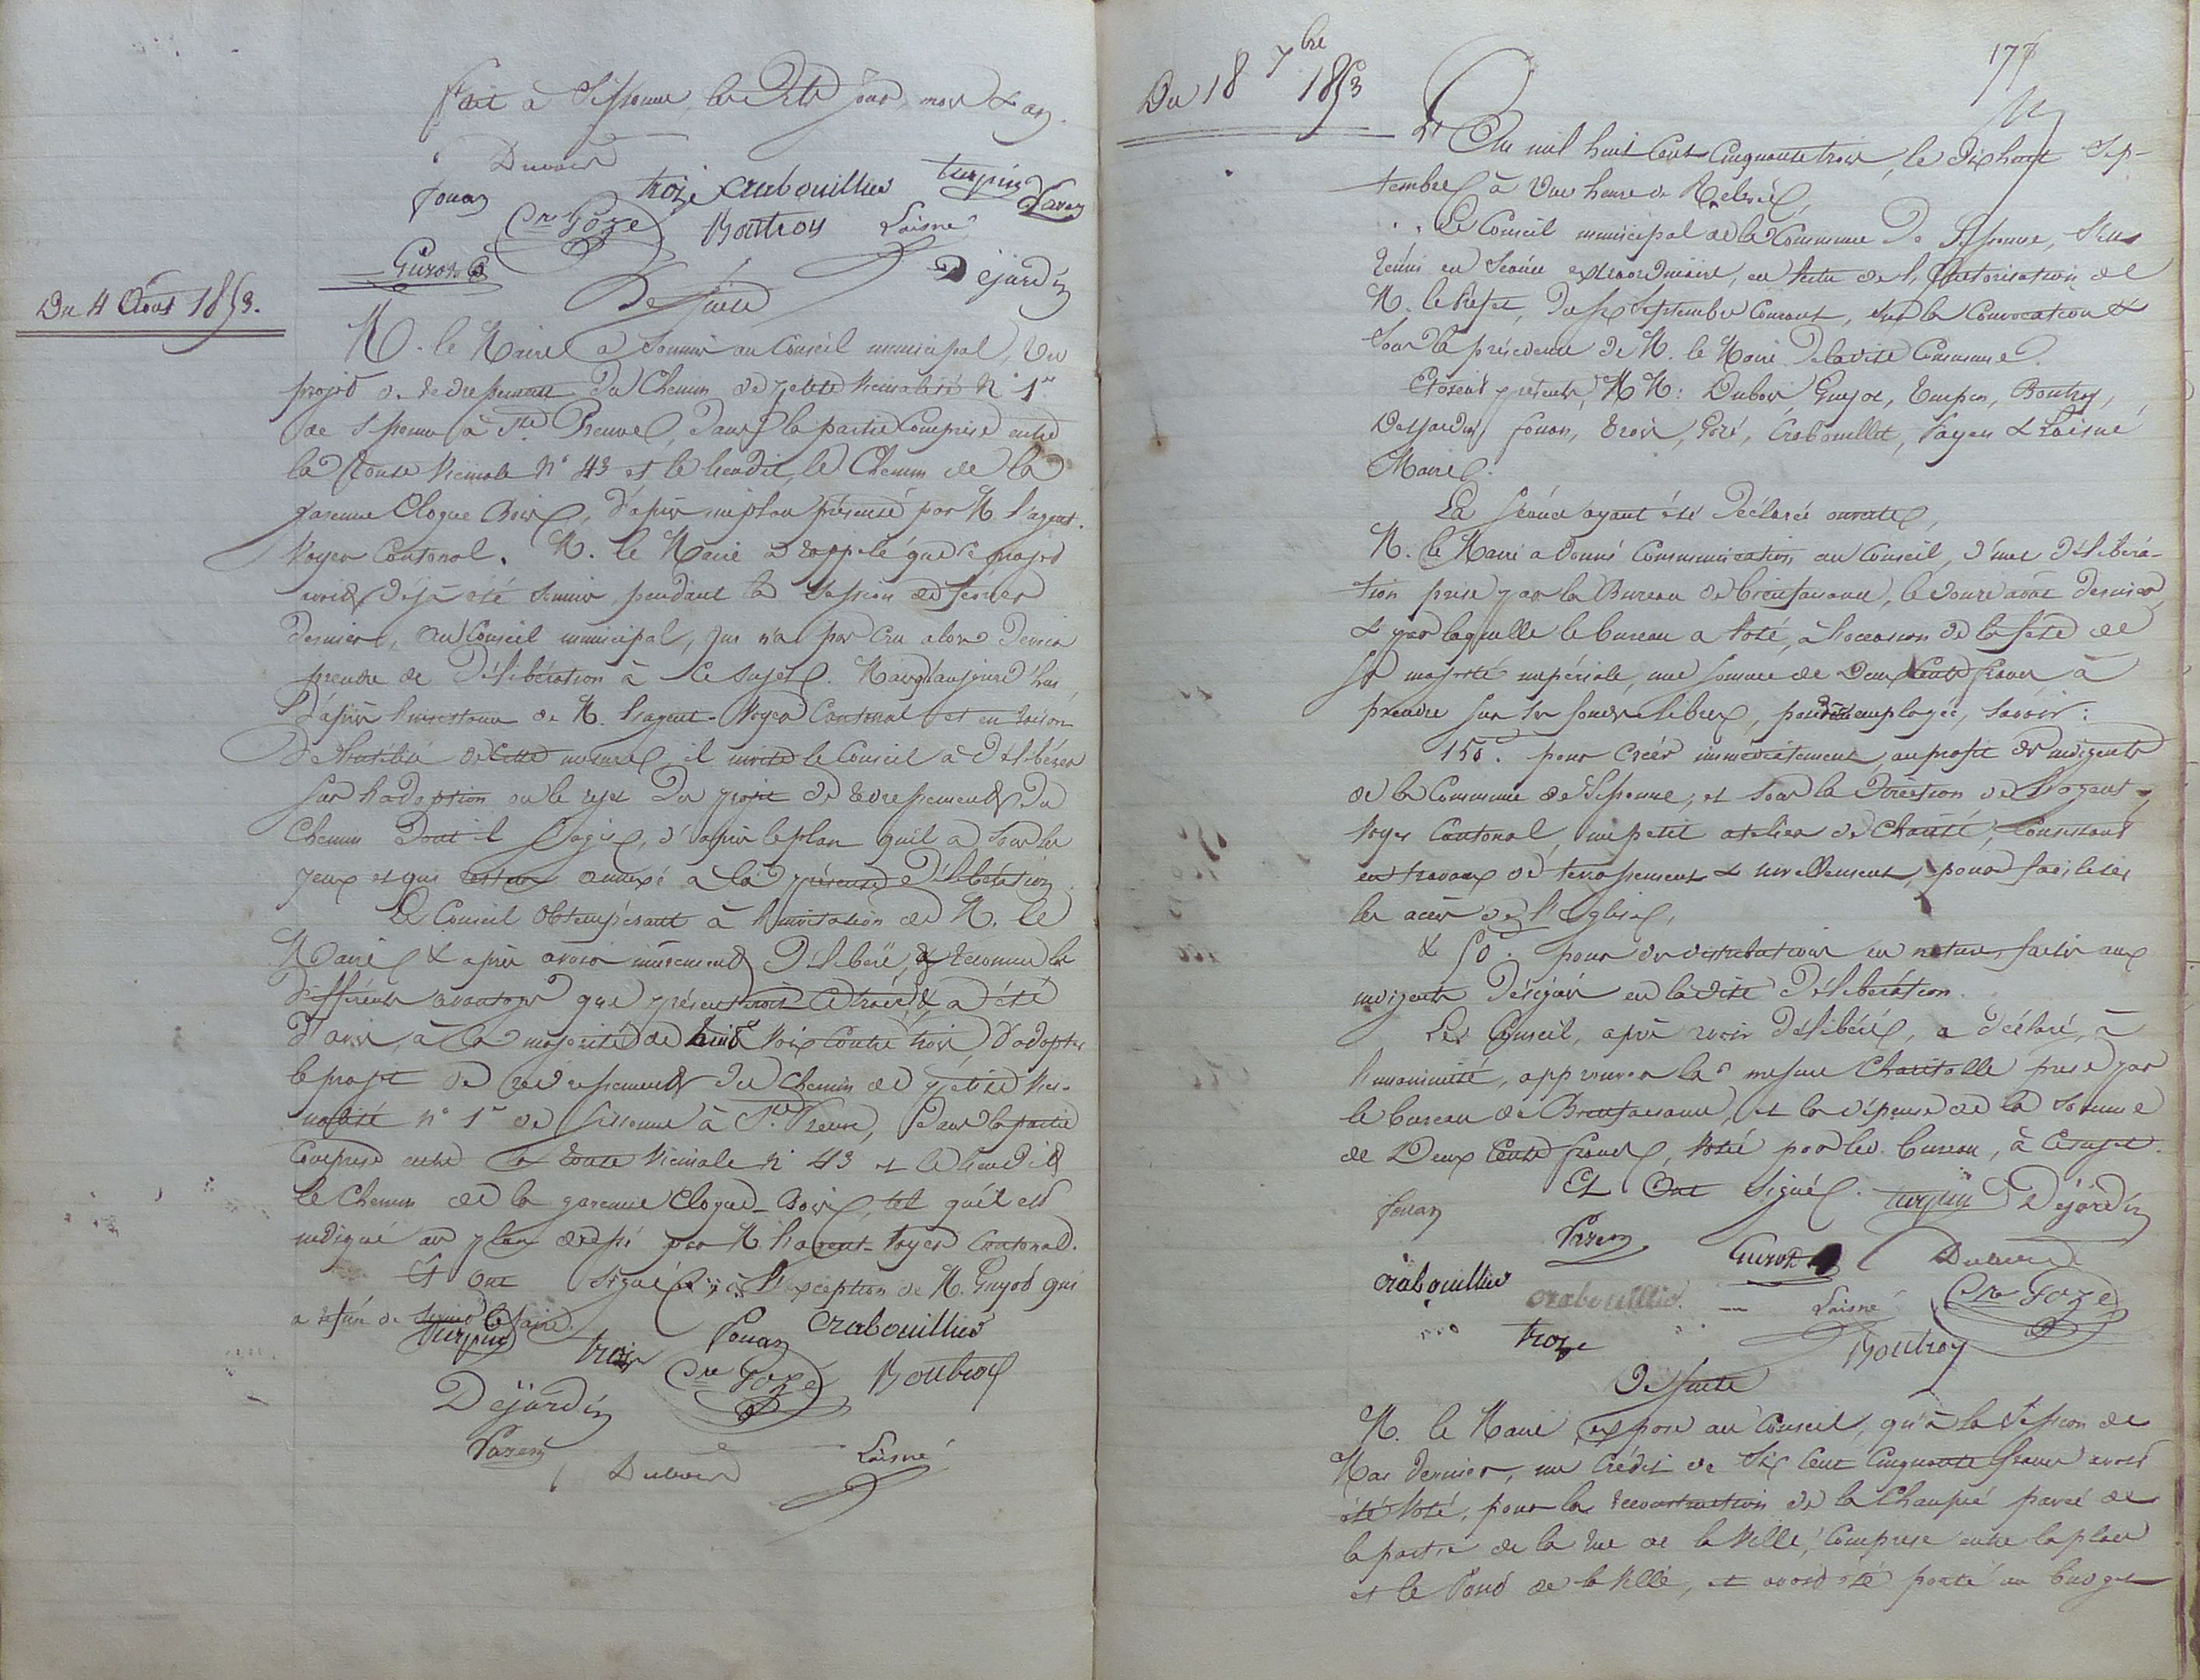 fait à Sissonne, les dits jour, mois & an.
Dubois
fouan troize Crabouillier turpin Payen
Cre Gozé Boutroy Laisné
Guyot Dejardin
De suite
Du 4 Aout 1853.
M. le Maire a soumis au Conseil municipal, un
projet de redressement du Chemin de petite vicinalité N° 1er
de Sissonne à Ste Preuve, dans la partie Comprise entre
la Route vicinale N° 43 et le lieudit le Chemin de la
garenne Cloque Bois, d'après un plan présenté par M. l'agent-
voyer Cantonal. M. le Maire a rappelé que ce projet
avait déjà été soumis, pendant la session de février
dernier, au Conseil municipal, qui n'a pas cru alors devoir
prendre de délibération à ce sujet. Mais qu'aujourd'hui,
d'après l'insistance de M. l'agent-voyer Cantonal et en raison
de l'utilité de cette mesure, il invite le Conseil à délibérer
sur l'adoption ou le rejet du projet de redressement du
Chemin dont il s'agit, d'après le plan qu'il a sous les
yeux et qui restera annexé à la présente délibération.
Le Conseil obtempérant à l'invitation de M. le
Maire & après avoir mûrement délibéré, & reconnu les
différents avantages que présenterait ce tracé, & a été
d'avis, à la majorité de huit voix Contre trois, d'adopter
le projet de redressement du Chemin de petite vici-
nalité n° 1er de Sissonne à Ste Preuve, dans la partie
Comprise entre la route vicinale N° 43 et le lieudit
le Chemin de la garenne Cloque-Bois, tel qu'il est
indiqué au plan dressé par M. l'agent-voyer Cantonal.
Et ont signé, à l'exception de M. Guyot qui
a refusé de le faire.
turpin troize fouan Crabouillier
Dejardin Cre Gozé Boutroy
Payen Dubois Laisné
177
Du 18 7bre 1853
L'An mil huit Cent Cinquante trois, le dix huit Sep-
tembre à une heure de Relevée,
Le Conseil municipal de la Commune de Sissonne, s'est
réuni en Séance extraordinaire, en vertu de l'autorisation de
M. le Préfet, du six Septembre Courant, sur la Convocation &
sous la présidence de M. le Maire de la dite Commune.
Etaient présents, MM: Dubois Guyot, Turpin, Boutroy,
Desjardin, fouan, Trois, Gozé, Crabouillet, Payen & Laisné
Maire.
La séance ayant été déclarée ouverte,
M. le Maire a donné Communication au Conseil, d'une délibéra-
tion prise par le Bureau de bienfaisance, le douze aout dernier,
& par laquelle le bureau a voté, à l'occasion de la fête de
sa majesté impériale, une somme de Deux Cents francs à
prendre sur les fonds libres, pour être employée, savoir:
150f. pour Créer immédiatement, au profit des indigents
de la Commune de Sissonne, et sous la direction de l'agent-
voyer Cantonal, un petit atelier de Charité, Consistant
en travaux de terrassement & nivellement, pour faciliter
les accès de l'Eglise,
& 50f. pour des distributions en nature faites aux
indigents désignés en la dite délibération.
Le Conseil, après avoir délibéré, a déclaré, à
l'unanimité, approuver la mesure Charitable prise par
le bureau de Bienfaisance, et la dépense de la somme
de Deux Cents francs, votée par le bureau, à ce sujet.
Et Ont signé. turpin Dejardin
fouan Payen Guyot Dubois
Crabouillier Crabouillier Laisné Cre Gozé
troize Boutroy
De suite
M. le Maire expose au Conseil, qu'à la Session de
Mai dernier, un Crédit de Six Cent Cinquante francs avait
été voté, pour la reconstruction de la Chaussée pavée de
la partie de la rue de la Ville, Comprise entre la place
et le Pont de la Ville, et avait été porté au budget